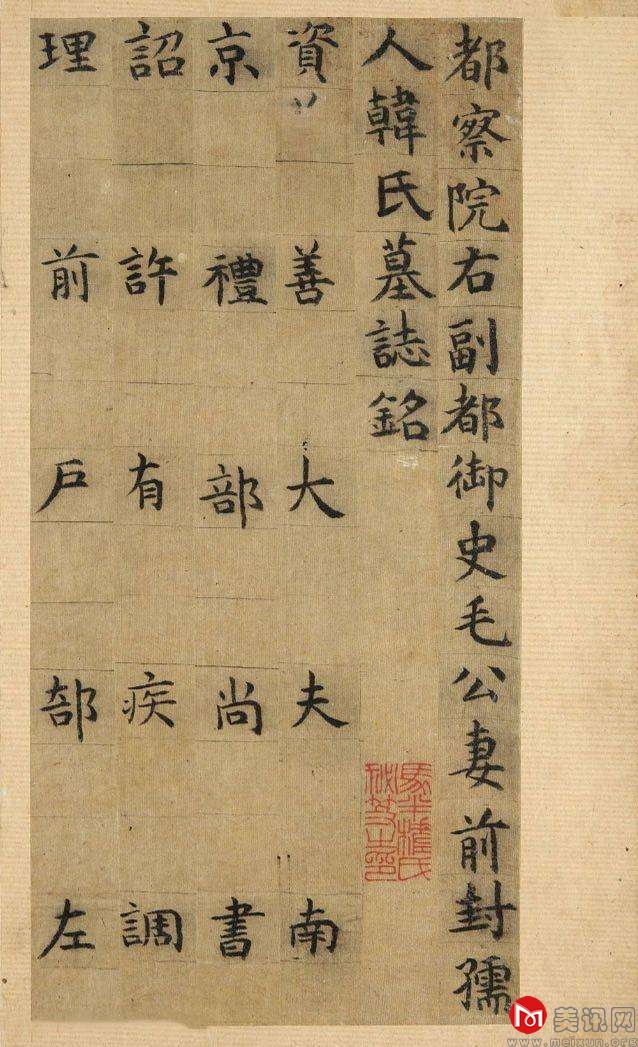 都察院右副都御史毛公妻前封孺
人韓氏墓誌銘
資善大夫南
京禮部尚書
詔許有疾調
理前戶部左
美讯网
www.meixun.org